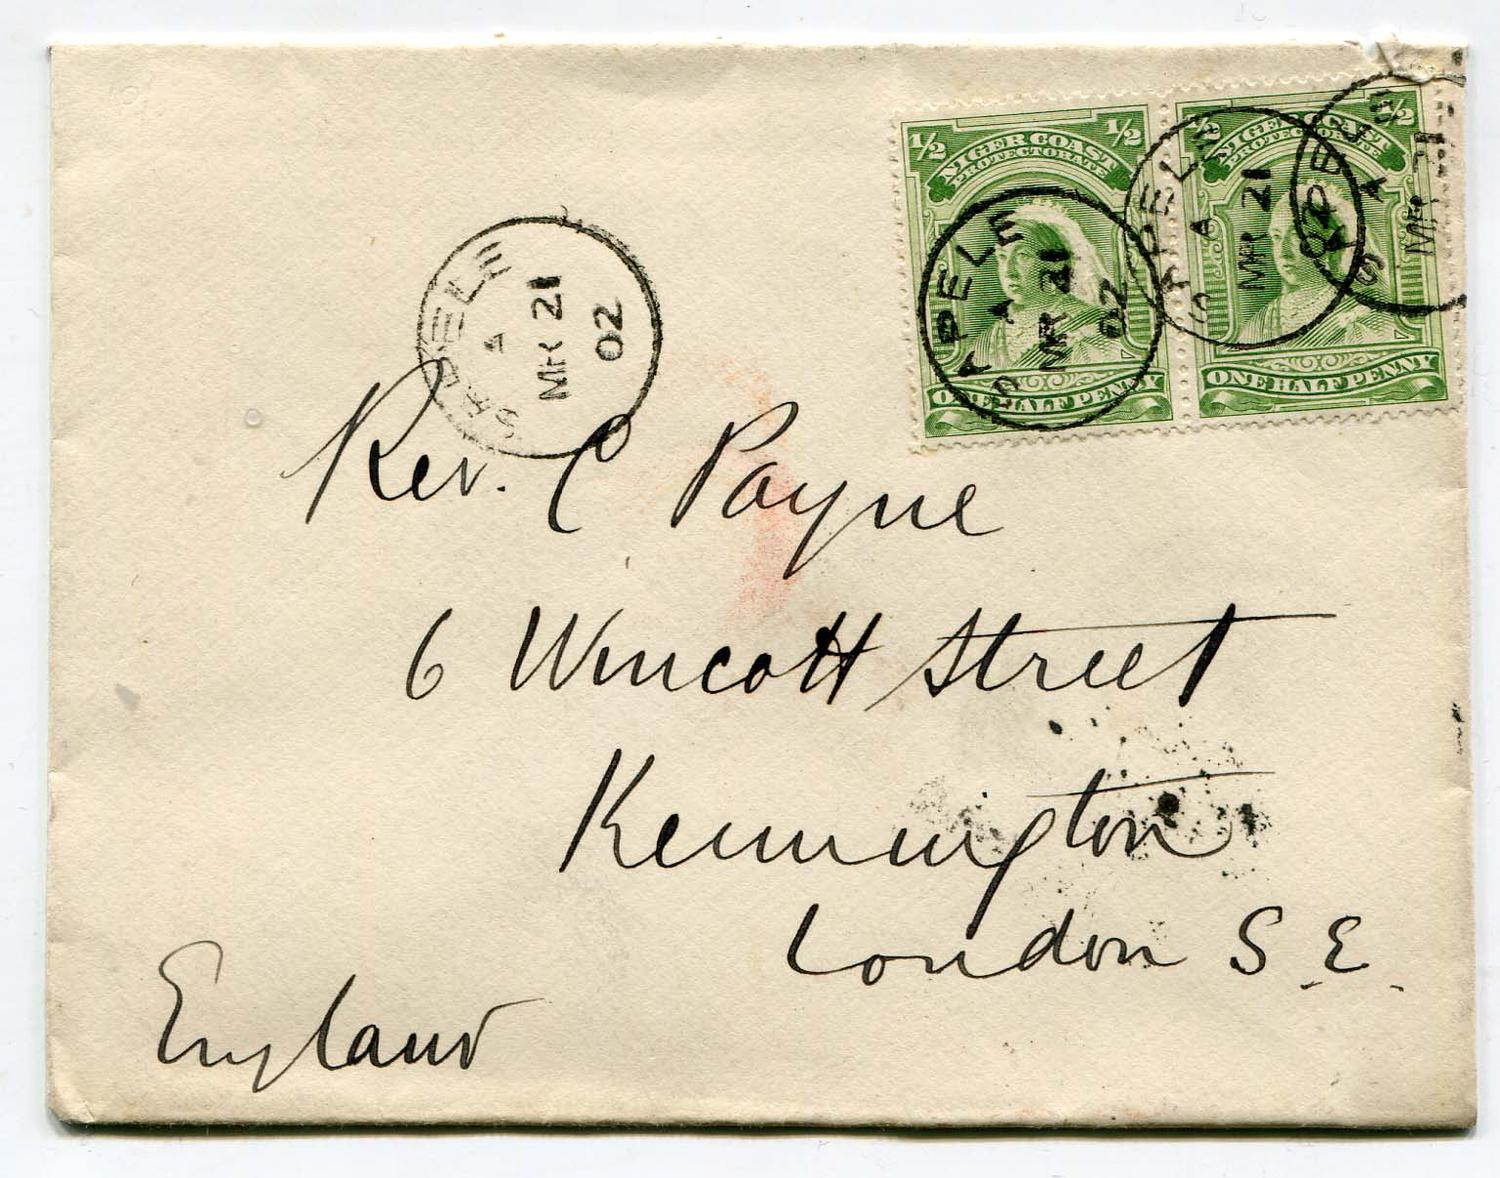 1/2 1/2
NIGER COAST
PROTECTORATE
ONE HALF PENNY
1/2 1/2
NIGER COAST
PROTECTORATE
ONE HALF PENNY
SAPELE
A
MR 21
02
SAPELE
A
MR 21
02
SAPELE
A
MR 21
02
SAPELE
A
MR
Rev. C Payne
6 Wincott Street
Kennington
London S.E.
England